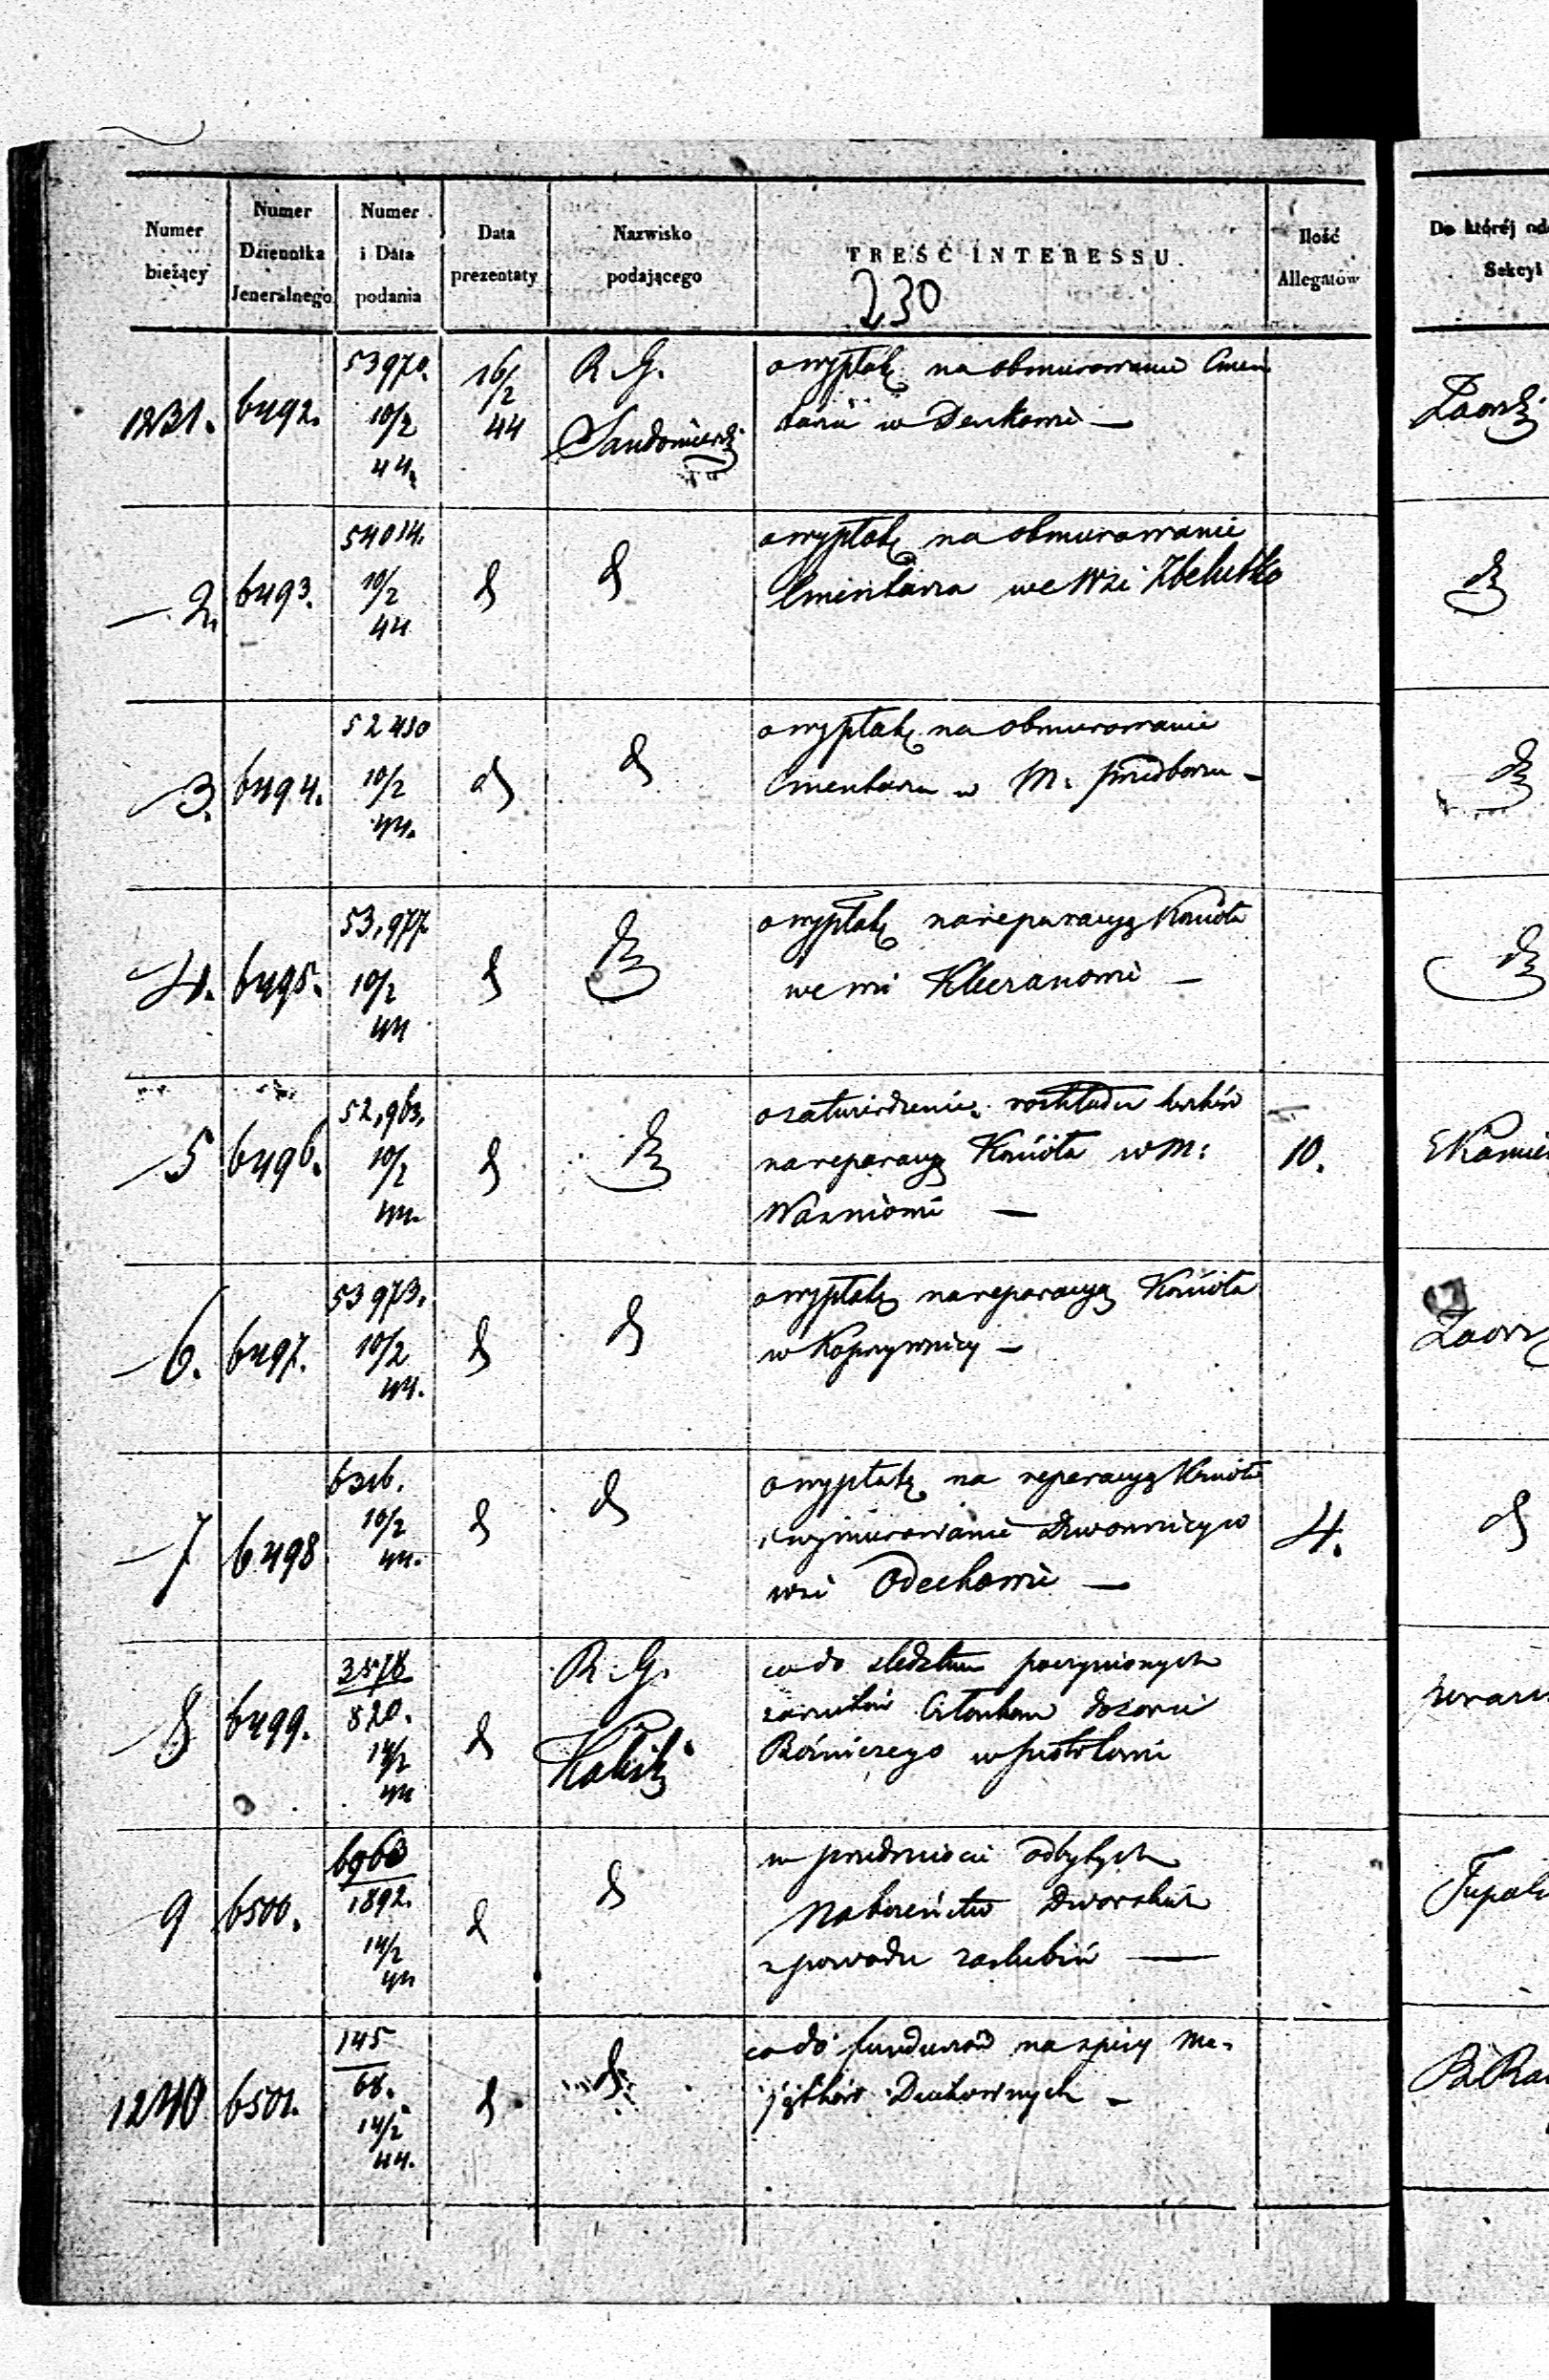 Numer bieżący
Numer Dziennika Jeneralnego
Numer i Data podania
Data prezentaty
Nazwisko podającego
TREŚĆ INTERESSU.
Ilość Allegatów
Do któréj od
Sekcyi
230
1231. 6492. 53970. 10/2 44. 16/2 44 R. G. Sandomierski
o wypłatę na obmurowanie Cmen
tarza w Denkowie —
2. 6493. 54014. 10/2 44 d d
o wypłatę na obmurowanie
Cmentarza we Wsi Zbelutka
3. 6494. 52410 10/2 44. d d
o wypłatę na obmurowanie
Cmentarza w M. Przedborzu —
4. 6495. 53,977 10/2 44 d d
o wypłatę na reparacyą Kościoła
we wsi —
5 6496. 52,963. 10/2 44. d d
o zatwierdzenie rozkładu
na reparacyą Kościoła w M: 10.
Waśniowie —
6. 6497. 53973. 10/2 44. d d
o wypłatę na reparacyą Kościoła
w Koprzywnicy —
7 6498 10/2 44. d d
o wypłatę na reparacyą Kościoła
i wymurowanie Dzwonnicy w 4.
wsi Odechowie —
8 6499. 3578 820. 14/2 44 d R. G. Kaliski
co do śledztwa poczynionych
zarzutów Członkom Dozoru
Bóżniczego w Piotrkowie
9 6500. 6963 1892. 14/2 44 d d
w przedmiocie odbytych
Nabożeństw Dworskich
z powodu zaślubin —
1240 6501. 145 68. 14/2 44. d d
co do funduszów na spisy Ma-
jątków Duchownych —